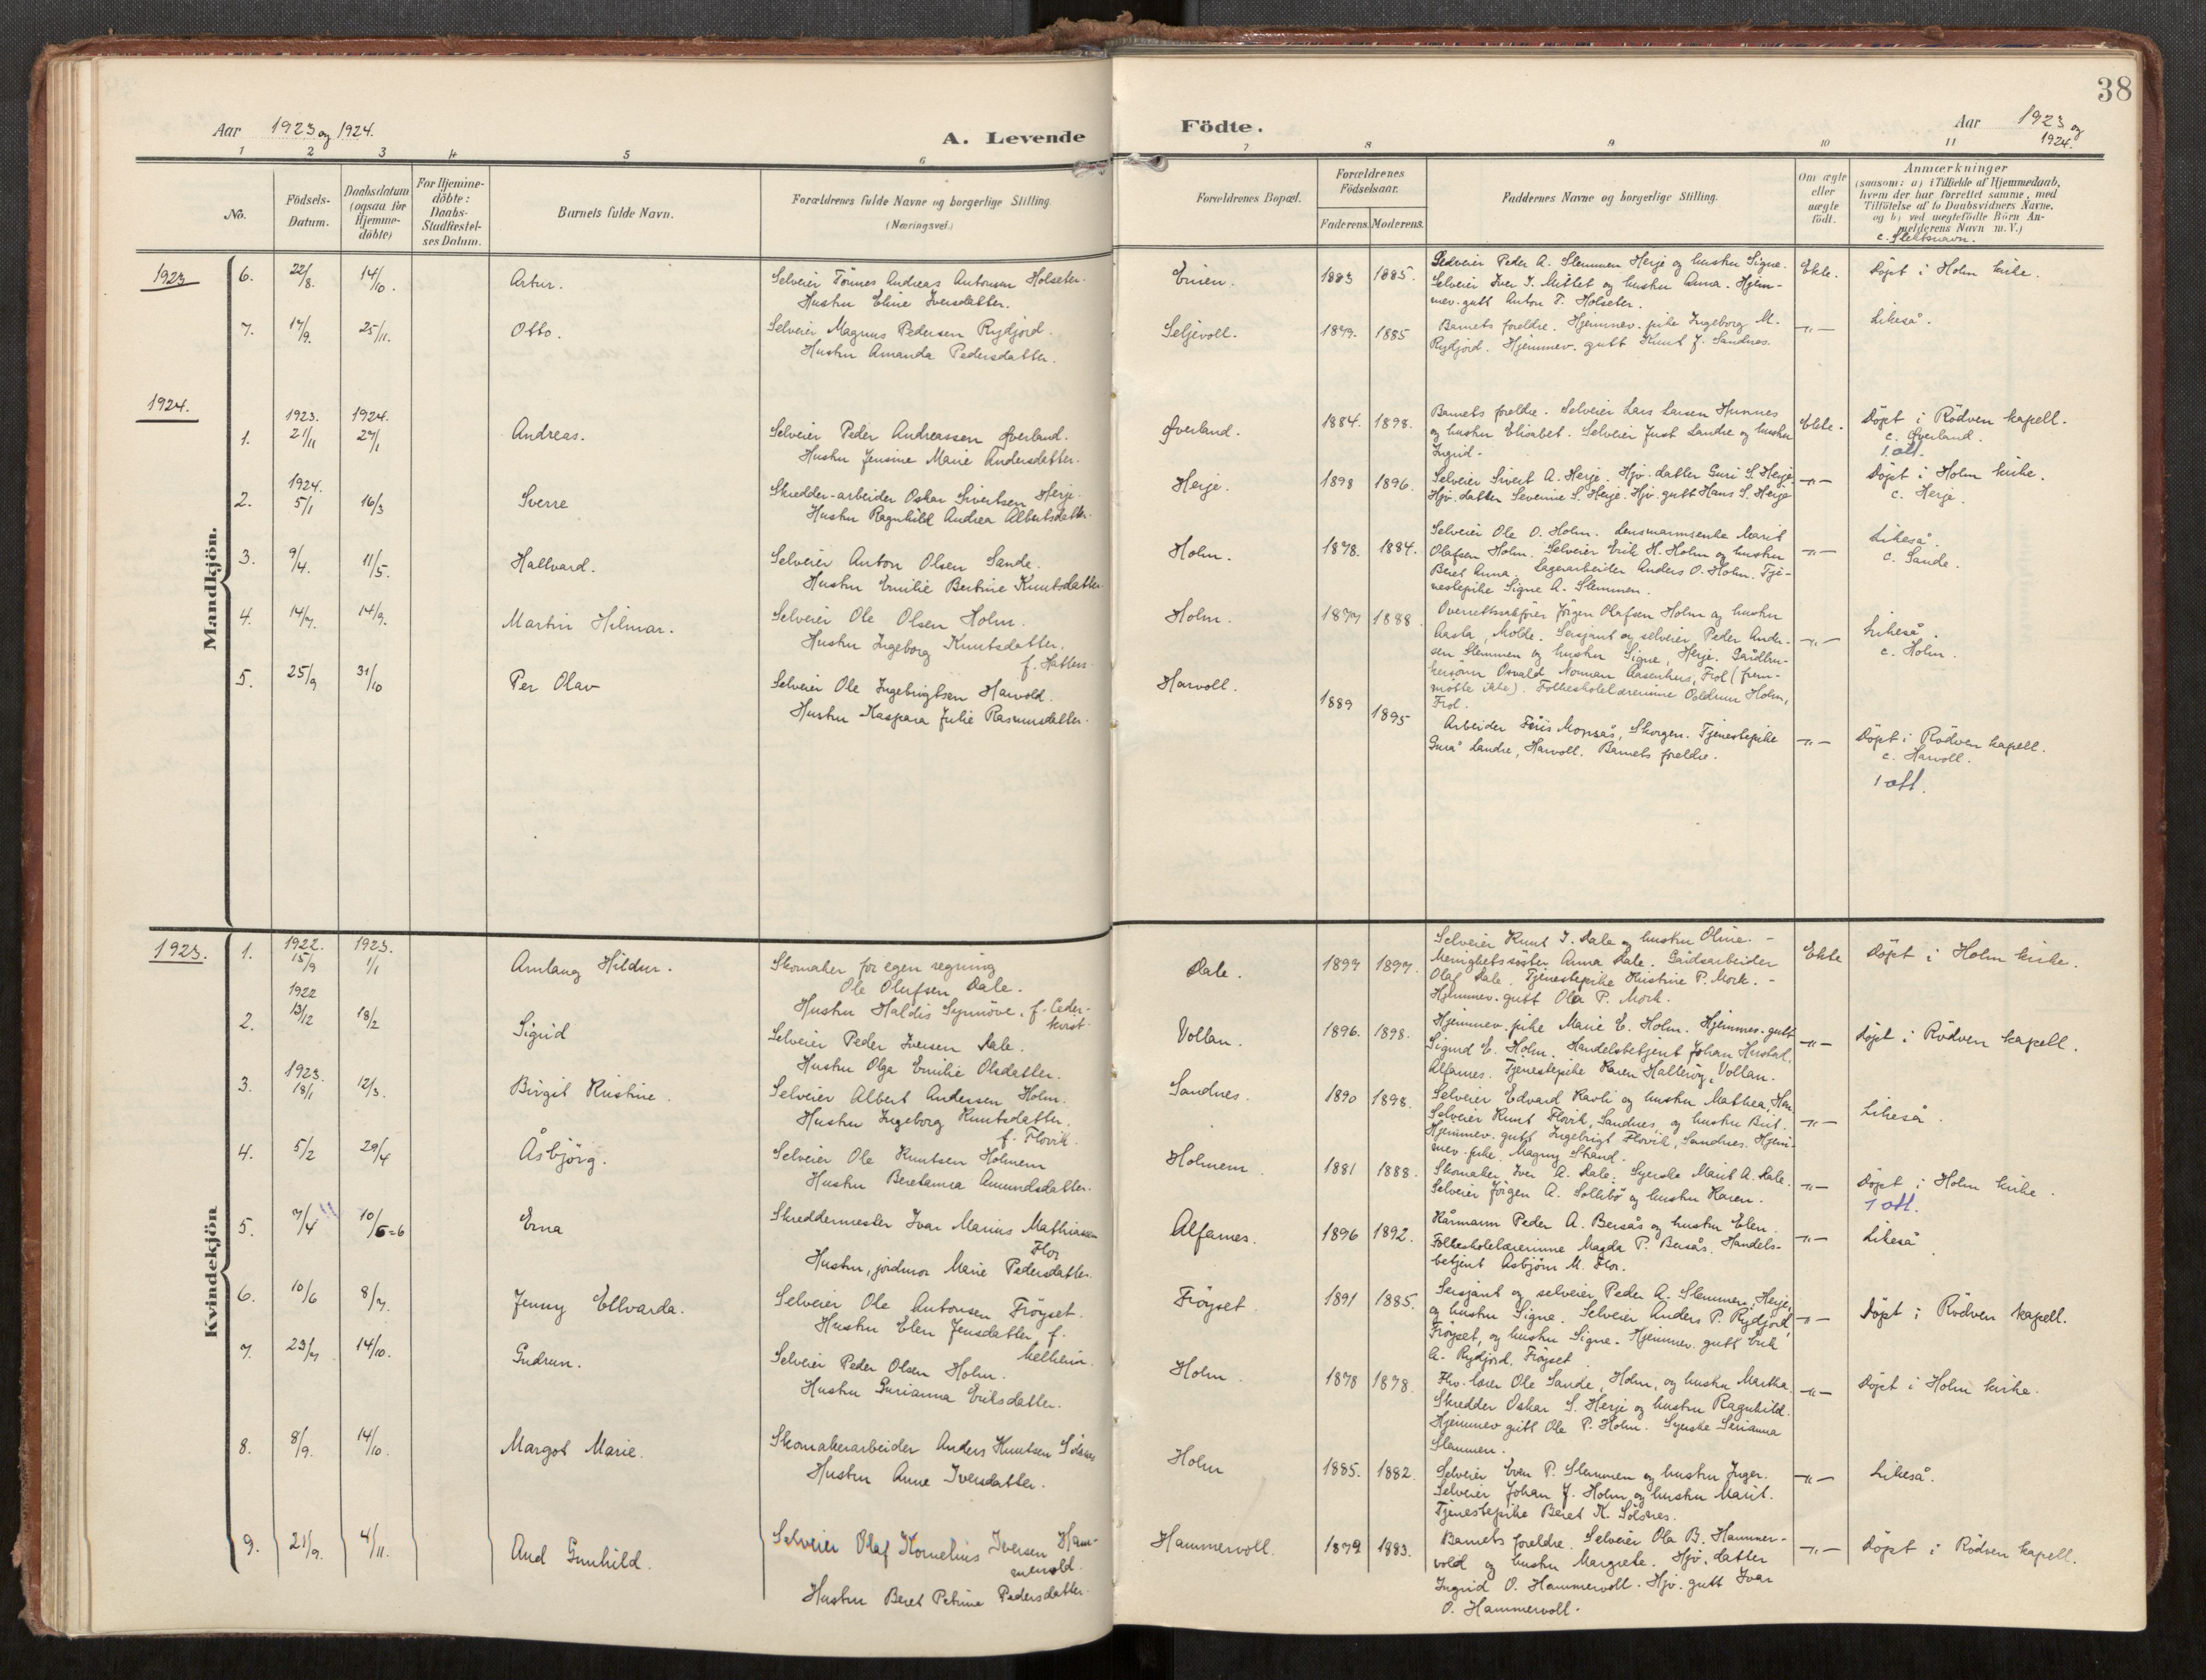 38
Aar 1923 og 1924.
A. Levende
Födte.
Aar 1923 og
1924.
1 2 3 4 5 6 7 8 9 10 11
No.
Födsels-
Datum.
Daabsdatum
(ogsaa for
Hjemme-
döbte)
For Hjemme-
döbte:
Daabs-
Stadfæstel-
ses Datum.
Barnets fulde Navn.
Forældrenes fulde Navne og borgerlige Stilling
(Næringsvei.)
Forældrenes Bopæl.
Forældrenes
Födselsaar.
Faderens. Moderens.
Faddernes Navne og borgerlige Stilling.
Om ægte
eller
uægte
födt.
Anmærkninger
(saasom: a) i Tilfælde af Hjemmedaab,
hvem der har forrettet samme, med
Tilföielse af to Daabsvidners Navne,
og b) ved uegtefödte Börn An-
melderens Navn m. V.)
c. Slektsnavn.
Mandkjön.
1923
6. 22/8. 14/10. Artur.
Selveier Tönnes Andreas Antonsen Holseter.
Hustru Eline Iversdatter.
1883 1885.
Selveier Peder A. Slemmen Herje og hustru Signe.
Selveier Iver I. Mittet og hustru Anna. Hjem-
mev. gutt Anton T. Holseter.
Ekte.
Döpt i Holm kirke.
7. 17/9. 25/11. Otto.
Selveier Magnus Pedersen Rydjord.
Hustru Amanda Pedersdatter.
Seljevoll.
1879. 1885
Barnets foreldre. Hjemmev. pike Ingeborg M.
Rydjord. Hjemmev. gutt Knut J. Sandnes.
-"-
Likeså.
1924.
1923. 1924.
1. 21/11 27/1 Andreas.
Selveier Peder Andreassen Øverland.
Hustru Jensine Marie Andersdatter.
Øverland.
1884. 1898.
Barnets foreldre. Selveier Lars Larsen Hunnes
og hustru Elisabet. Selveier Just Landre og hustru
Ingrid.
Ekte.
Döpt i Rödven kapell.
c. Øverland.
1 att.
1924.
2. 5/1 16/3 Sverre
Skredder-arbeider Oskar Sivertsen Herje.
Hustru Ragnhild Andrea Albertsdatter.
Herje.
1898 1896.
Selveier Sivert A. Herje. Hjv. datter Guri S. Herje.
Hjv. datter Severine S. Herje. Hjv. gutt Hans S. Herje
-"-
Döpt i Holm kirke.
c. Herje.
3. 9/4. 11/5. Hallvard.
Selveier Anton Olsen Sande.
Hustru Emilie Bertine Knutsdatter.
Holm.
1878. 1884.
Selveier Ole O. Holm. Lensmannsenke Marit
Olafsen Holm. Selveier Erik H. Holm og hustru
Beret Anna. Lagerarbeider Anders O. Holm. Tje-
nestepike Signe A. Slemmen.
-"-
Likeså.
c. Sande.
4. 14/7. 14/9. Martin Hilmar.
Selveier Ole Olsen Holm.
Hustru Ingeborg Knutsdatter.
f. Hatlen
Holm.
1877 1888
Overrettssakförer Jörgen Olafsen Holm og hustru
Aasta, Molde. Sersjant og selveier Peder Ander-
sen Slemmen og hustru Signe, Herje. Gårdbru-
kersönn Osvald Norman Aasenhus, Frol (frem-
mötte ikke). Folkeskolelærerinne Oddrun Holm,
Frol.
-"-
Likeså.
c. Holm.
5. 25/9 31/10 Per Olav
Selveier Ole Ingebrigtsen Harvold.
Hustru Kaspara Julie Rasmusdatter.
Harvoll.
1889 1895
Arbeider Friis Monsås, Skorgen. Tjenestepike
Gura Landre, Harvoll. Barnets foreldre.
-"-
Döpt i Rödven kapell.
c. Harvoll.
1 att.
Kvindekjön
1923.
1922. 1923.
1. 15/9 1/1 Amlaug Hildur.
Skomaker for egen regning
Ole Olufsen Dale.
Hustru Haldis Synnöve, f. Ceder-
kvist.
Dale.
1899 1897.
Selveier Knut I. Dale og hustru Oline. -
Menighetssöster Anna Dale. Gårdsarbeider
Olaf Dale. Tjenestepike Kristine P. Mork. -
Hjemmev. gutt Ola P. Mork.
Ekte
Döpt i Holm kirke.
1922
2. 13/12 18/2 Sigrid
Selveier Peder Iversen Dale.
Hustru Olga Emilie Olsdatter.
Vollan.
1896. 1898.
Hjemmev. pike Marie E. Holm. Hjemmev. gutt
Sigurd E. Holm. Handelsbetjent Johan Hustad,
Alfarnes. Tjenestepike Karen Halleröy, Vollan.
-"-
Döpt i Rödven kapell.
1923.
3. 18/1 12/3. Birgit Kristine.
Selveier Albert Andersen Holm.
Hustru Ingeborg Knutsdatter,
f. Flovik.
Sandnes.
1890 1898.
Selveier Edvard Ravli og hustru Mathea,
Selveier Knut Flovik, Sandnes, og hustru Brit.
Hjemmev. gutt Ingebrigt Flovik, Sandnes. Hjem-
mev. pike Magny Strand.
-"-
Likeså.
4. 5/2 29/4 Åsbjörg.
Selveier Ole Knutsen Holmem
Hustru Beretanna Amundsdatter.
Holmem.
1881 1888.
Skomaker Iver A. Dale. Syerske Marit A. Dale.
Selveier Jörgen A. Sollibö og hustru Karen.
-"-
Döpt i Holm kirke.
1 att.
5. 7/4 10/5=6 Erna
Skreddermester Ivar Marius Mathiassen
Flor
Hustru, jordmor Marie Pedersdatter.
Alfarnes.
1896 1892.
Kårmann Peder A. Bersås og hustru Elen.
Folkeskolelærerinne Magda P. Bersås. Handels-
betjent Asbjörn M. Flor.
-"-
Likeså.
6. 10/6 8/7. Jenny Ellvarda.
Selveier Ole Antonsen Fröyset.
Hustru Elen Jensdatter, f.
Fröyset.
1891 1885.
Sersjant og selveier Peder A. Slemmen, Herje,
og hustru Signe. Selveier Anders P. Rydjord,
Fröyset, og hustru Signe. Hjemmev. gutt Erik
A. Rydjord, Fröyset.
-"-
Döpt i Rödven kapell.
7. 23/7 14/10. Gudrun.
Selveier Peder Olsen Holm.
Hustru Gurianna Eriksdatter.
Holm.
1878 1878.
Fhv. lærer Ole Sande, Holm, og hustru Martha.
Skredder Oskar S. Herje og hustru Ragnhild.
Hjemmev gutt Ole P. Holm. Syerske Serianna
Slemmen.
-"-
Döpt i Holm kirke.
8. 8/9. 14/10. Margot Marie.
Skomakerarbeider Anders Knutsen Sölsnes
Hustru Anne Iversdatter.
Holm
1885. 1882.
Selveier Even P. Slemmen og hustru Inger.
Selveier Johan J. Holm og hustru Marit.
Tjenestepike Beret K. Sölsnes.
-"-
Likeså.
9. 21/9. 4/11. Aud Gunhild.
Selveier Olaf Kornelius Iversen Ham-
mervold.
Hustru Beret Petrine Pedersdatter.
Hammervoll.
1879 1883.
Barnets foreldre. Selveier Ola B. Hammer-
vold og hustru Margrete. Hjv. datter
Ingrid O. Hammervoll. Hjv. gutt Ivar
O. Hammervoll.
-"-
Döpt i Rödven kapell.